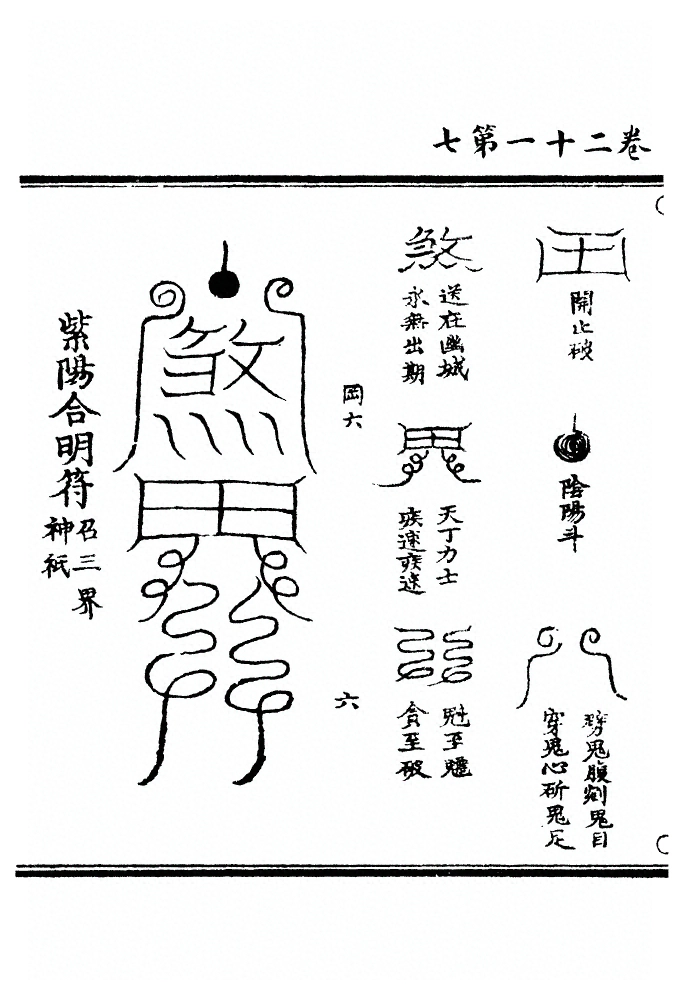 卷二十一第七
開止破
陰陽斗
劈鬼腹剜鬼目
穿鬼心斫鬼足
煞
送在幽城
永無出期
天丁力士
疾速疾速
魁至魒
貪至破
岡六
六
煞
紫陽合明符
召三界
神祇